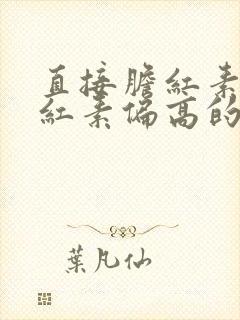 直接膽紅素
紅素偏高的
葉凡仙